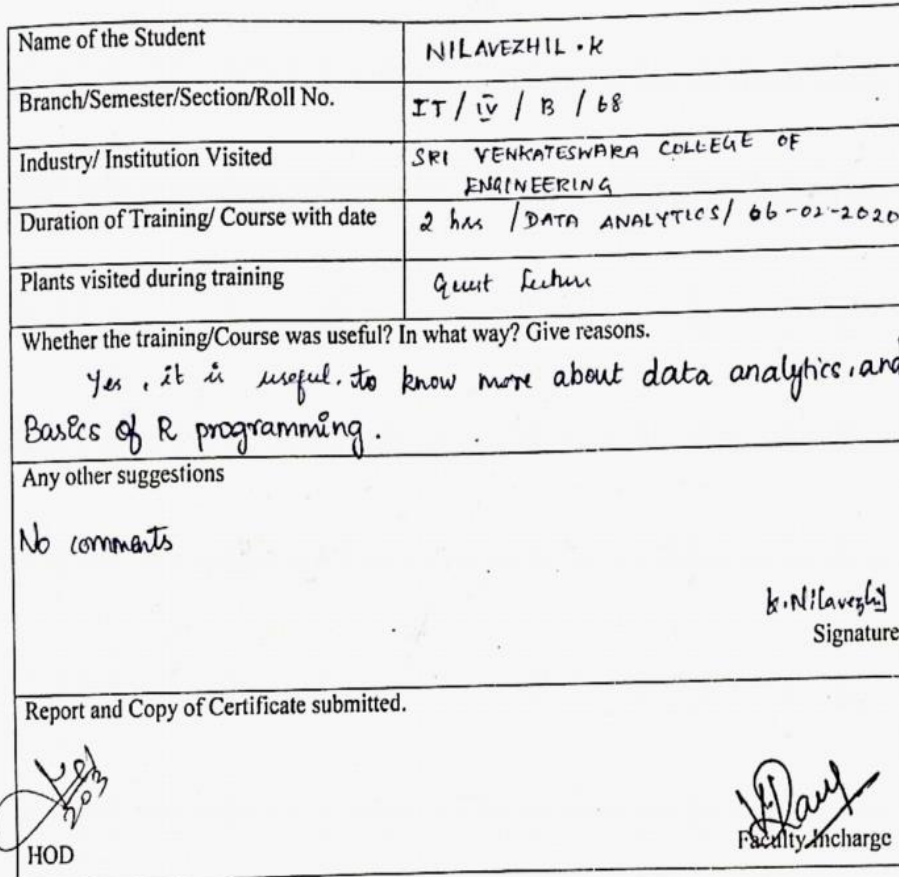 Name of the Student
NILAVEZHIL.K
Branch/Semester/Section/Roll No.
IT / IV / B / 68
Industry/ Institution Visited
SRI VENKATESWARA COLLEGE OF
ENGINEERING
Duration of Training/ Course with date
2 hrs / DATA ANALYTICS / 06-02-2020
Plants visited during training
Guest Lecture
Whether the training/Course was useful? In what way? Give reasons.
Yes, it is useful. to know more about data analytics, and
Basics of R programming.
Any other suggestions
No comments
K.Nilavezhil
Signature
Report and Copy of Certificate submitted.
HOD
Faculty Incharge